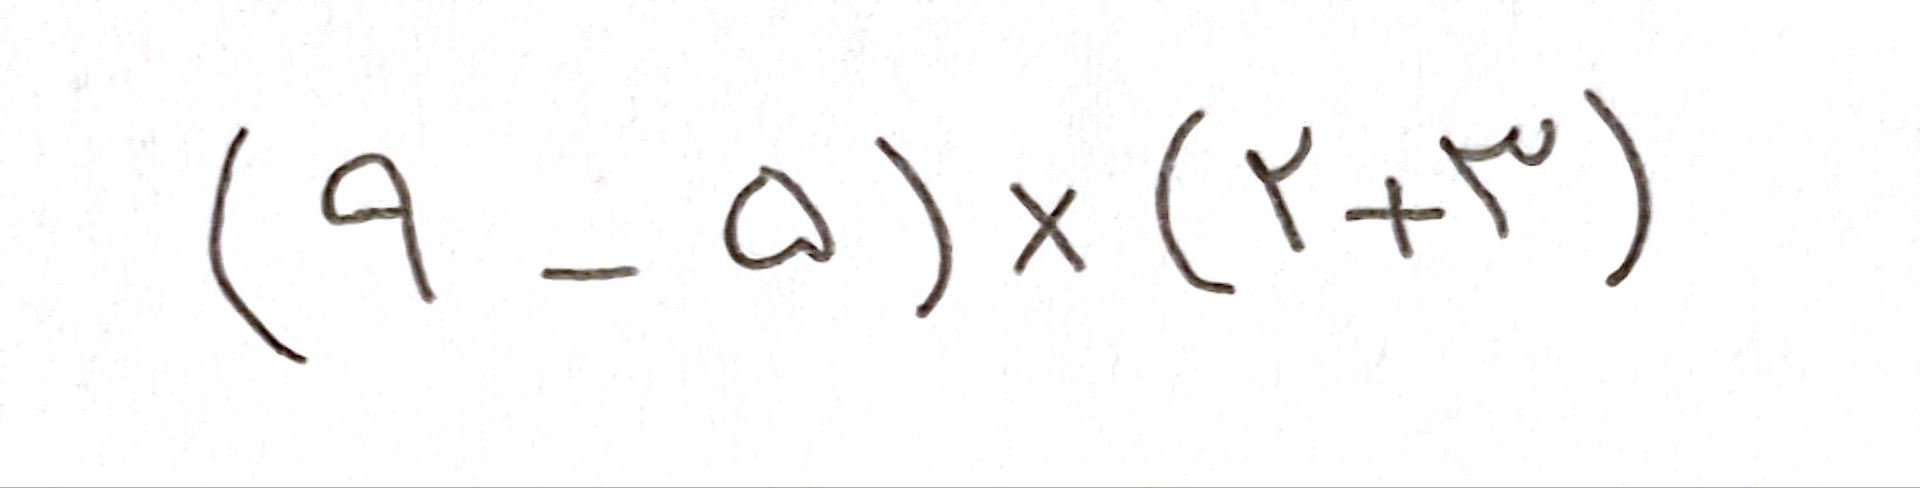 (۹ - ۵) × (۲ + ۳)